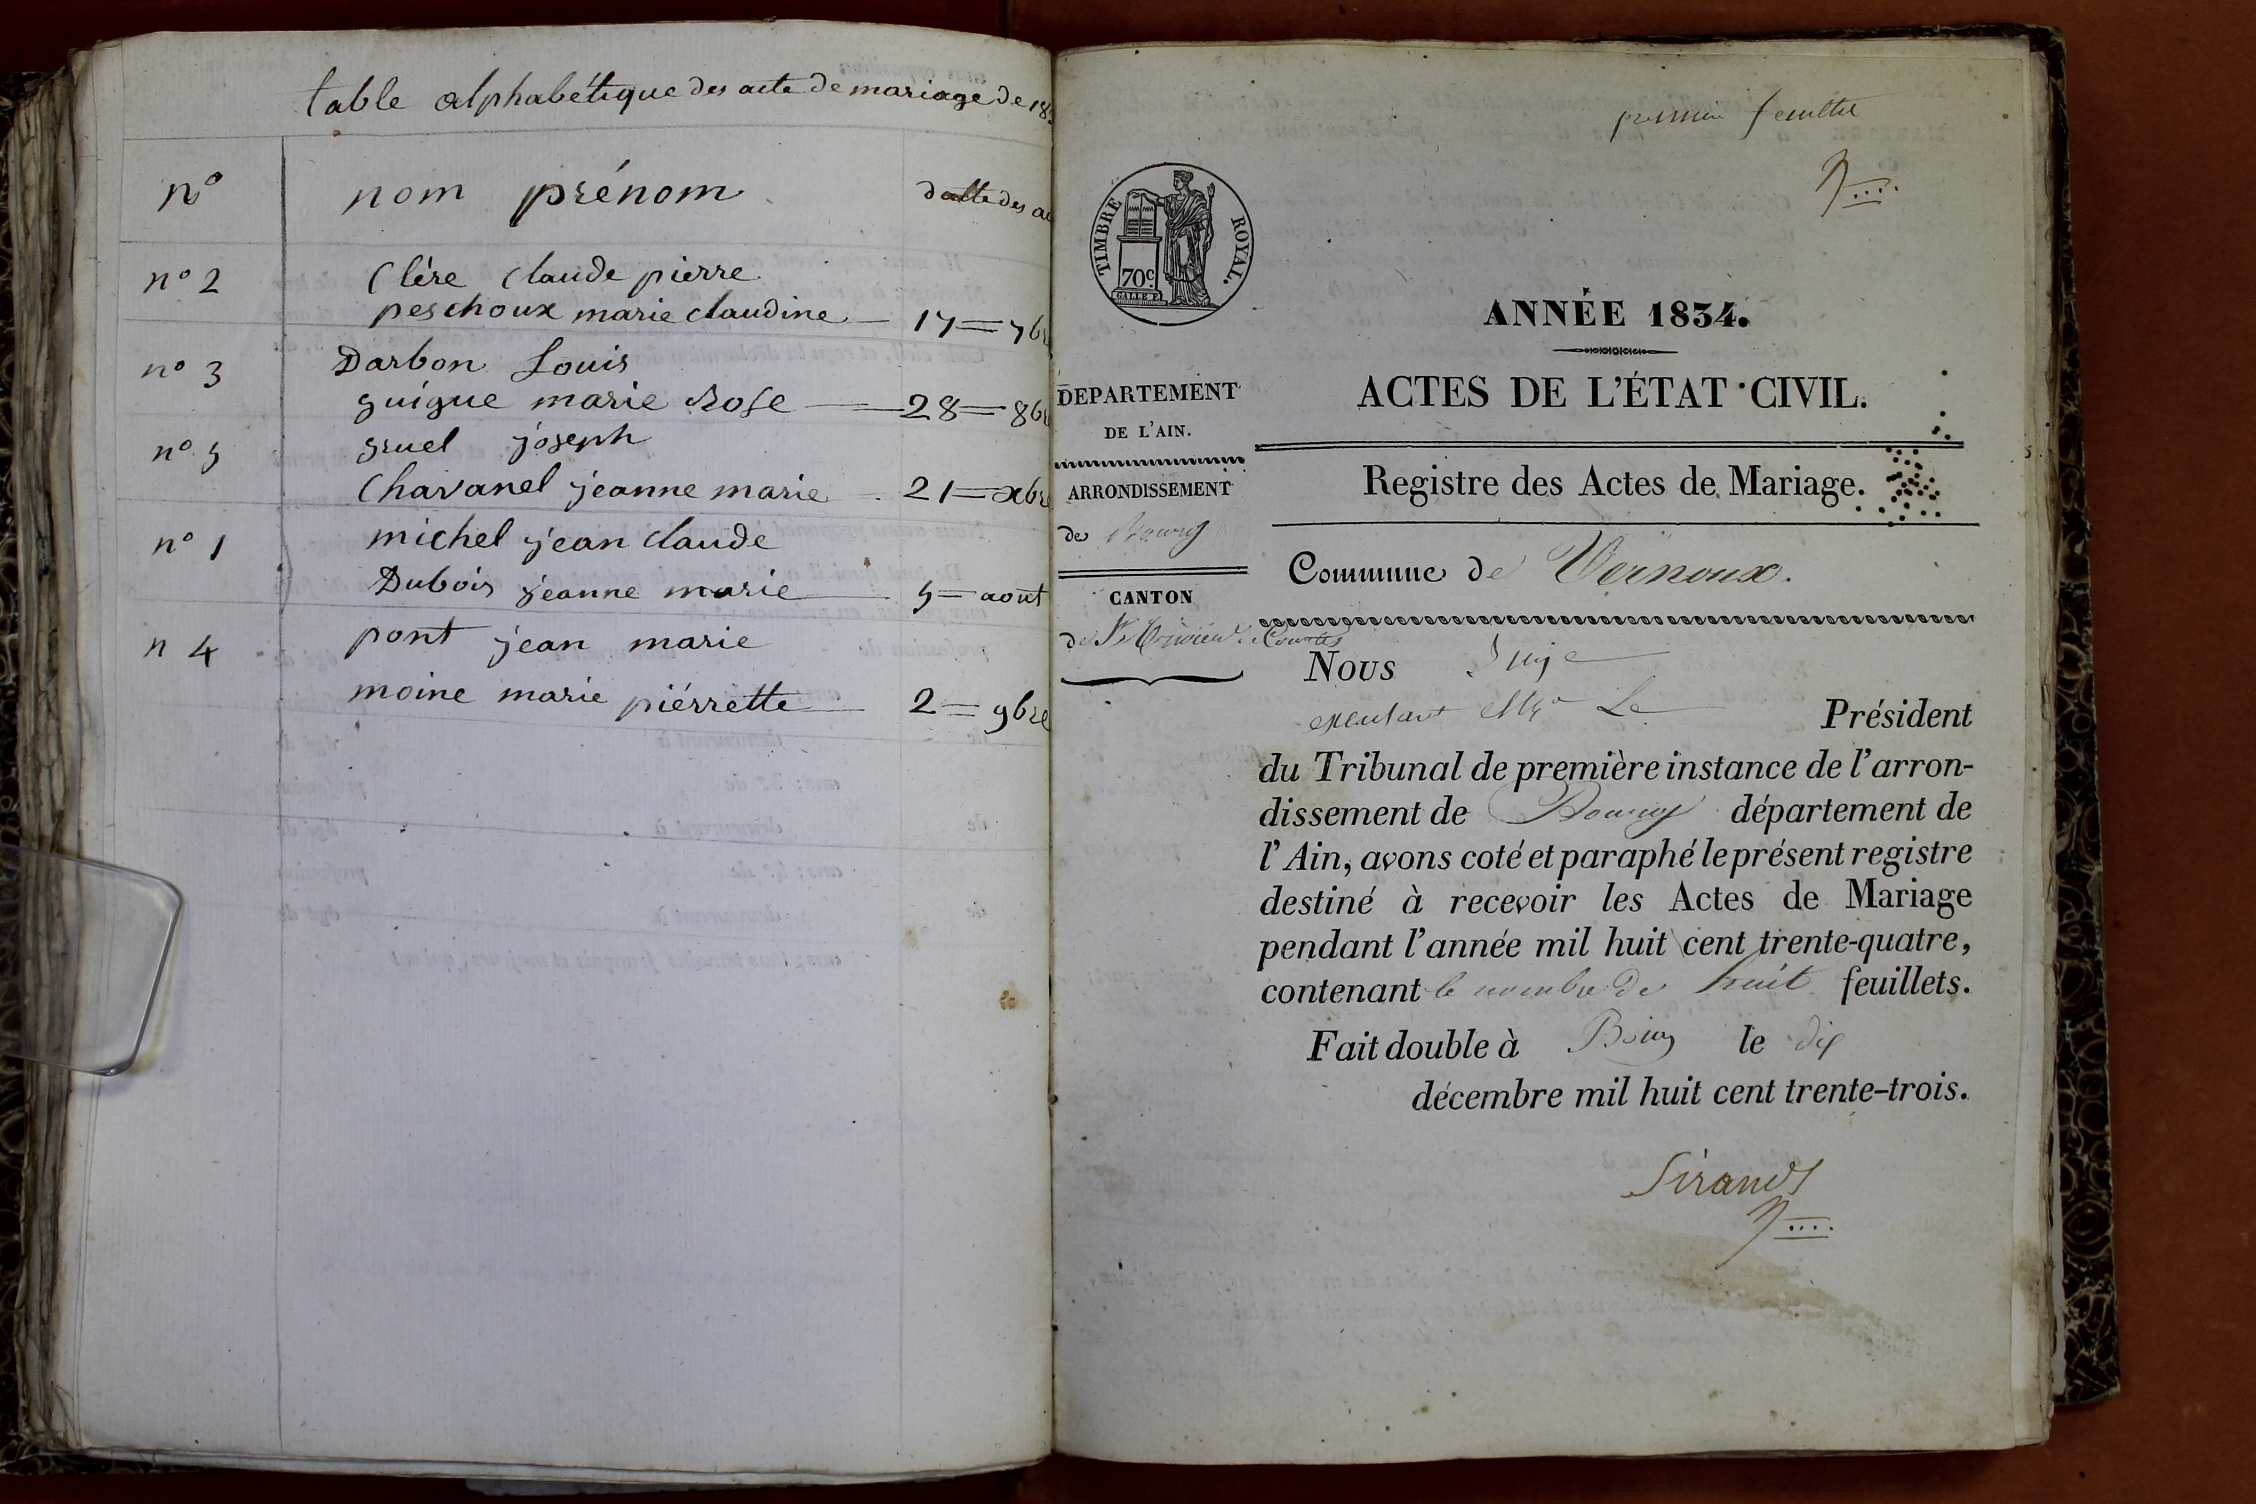 table alphabétique des acte de mariage de 18
n° nom prénom datte des ac
n° 2 Clére Claude pierre
peschoux marie claudine 17 = 7br
n° 3 Darbon Louis
guigue marie Rose 28 = 8br
n° 5 gruel joseph
Chavanel jeanne marie 21 = xbre
n° 1 michel jean claude
Dubois jeanne marie 5 = août
n 4 pont jean marie
moine marie piérrette 2 = 9bre
premier feuillet
TIMBRE ROYAL.
70c
ANNÉE 1834.
DEPARTEMENT
DE L'AIN.
ACTES DE L'ÉTAT CIVIL.
ARRONDISSEMENT
de Bourg
Registre des Actes de Mariage.
CANTON
de St Trivier Courtes
Commune de Vernoux.
Nous Juge
Le Président
du Tribunal de première instance de l'arron-
dissement de Bourg département de
l'Ain, avons coté et paraphé le présent registre
destiné à recevoir les Actes de Mariage
pendant l'année mil huit cent trente-quatre,
contenant le nombre de huit feuillets.
Fait double à Bourg le dix
décembre mil huit cent trente-trois.
Sirand